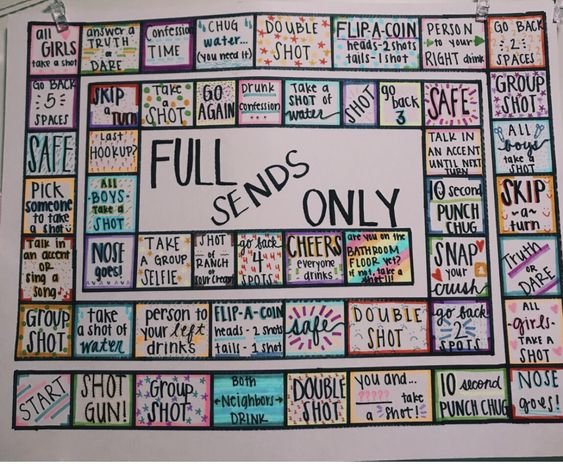 all
GIRLS
take a shot
answer a
TRUTH
or
DARE
Confession
TIME
CHUG
water...
(you need it)
DOUBLE
SHOT
FLIP-A-COIN
heads-2 shots
tails-1 shot
PERSON
to your
RIGHT drink
GO BACK
2
SPACES
GO BACK
5
SPACES
SKIP
a
TURN
TAKE
a
SHOT
GO
AGAIN
Drunk
confession
TAKE a
SHOT of
water
SHOT
go
back
3
SAFE
GROUP
SHOT
SAFE
Last
HOOKUP?
TALK IN
AN ACCENT
UNTIL NEXT
TURN
ALL
boys
take a
SHOT
PICK
someone
to take
a shot
ALL
BOYS
TAKE a
SHOT
FULL
SENDS
ONLY
10 second
PUNCH
CHUG
SKIP
-a-
turn
Talk in
an accent
OR
sing a
song
NOSE
goes!
TAKE
A GROUP
SELFIE
SHOT
of
RANCH
or
SOUR CREAM
go back
4
SPOTS
CHEERS
everyone
drinks
are you on the
BATHROOM
FLOOR yet?
if not, take a
shot!!!
SNAP
your
crush
Truth
or
DARE
GROUP
SHOT
take
a shot of
water
person to
your left
drinks
FLIP-A-COIN
heads - 2 shots
tails - 1 shot
safe
DOUBLE
SHOT
go back
2
SPOTS
ALL
girls
TAKE A
SHOT
START
SHOT
GUN!
Group
SHOT
Both
Neighbors
DRINK
DOUBLE
SHOT
you and...
????? take
a shot!
10 second
PUNCH CHUG
NOSE
goes!